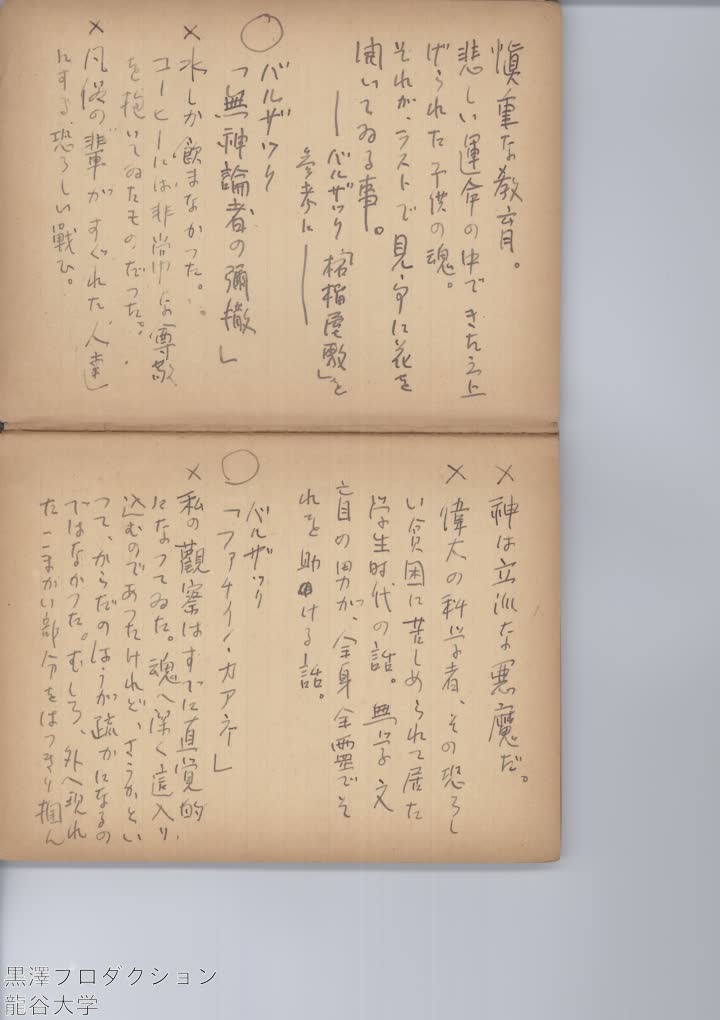 慎重な教育。
悲しい運命の中できたえ上
げられた子供の魂。
それが、ラストで見事に花を
開いてゐる事。
―バルザック「柘榴屋敷」を
参考に―
◯
バルザック
「無神論者の彌撤」
×水しか飲まなかつた。
コーヒーには非常な尊敬
を抱いてゐたものだつた。
×凡俗の輩がすぐれた人達
にする、恐ろしい戰ひ。
×神は立派な悪魔だ。
×偉大の科学者、その恐ろし
い貧困に苦しめられて居た
学生時代の話。無学文
盲の男が、全身全霊でそ
れを助ける話。
◯
バルザック
「ファチノ・カアネ」
×私の觀察はすでに直覚的
になつてゐた。魂へ深く這入り
込むのであつたけれど、さうかとい
つて、からだのはうが疏かになるの
ではなかつた。むしろ、外へ現れ
たこまかい部分をはつきり掴ん
黒澤プロダクション
龍谷大学